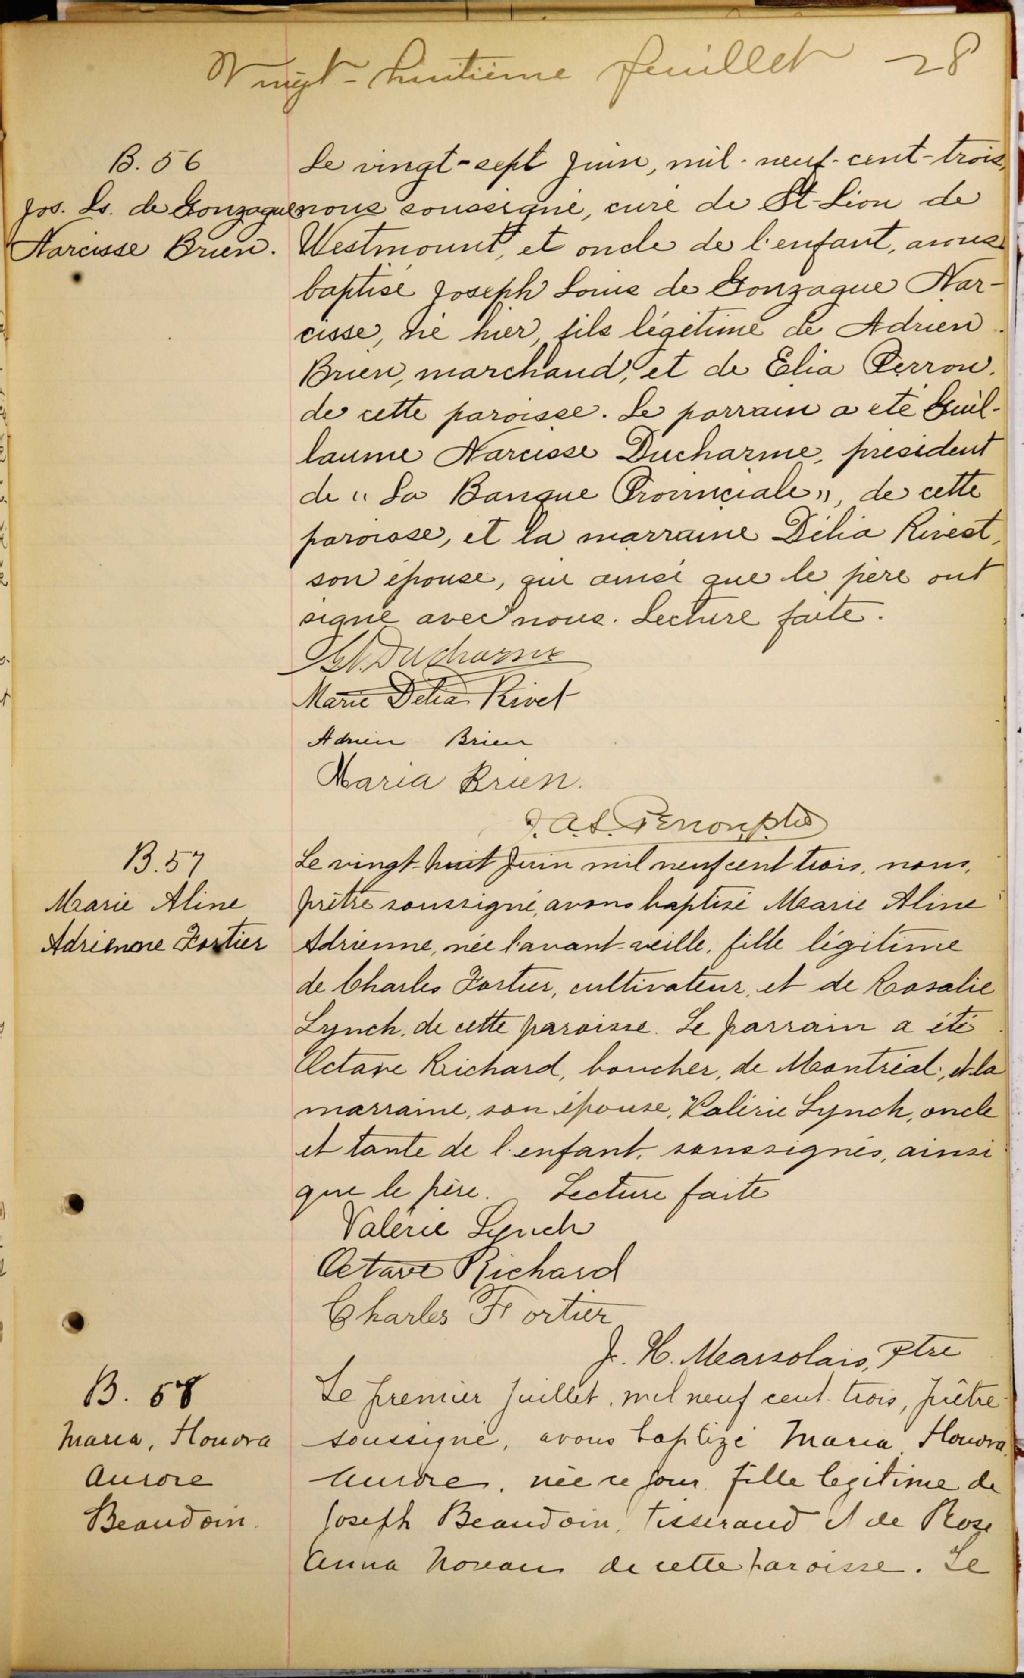 Vingt-huitième feuillet 28
B. 56
Jos. Ls. de Gonzague
Narcisse Brien.
Le vingt-sept Juin, mil-neuf-cent-trois,
nous soussigné, curé de St-Léon de
Westmount, et oncle de l'enfant, avons
baptisé Joseph Louis de Gonzague Nar-
cisse, né hier, fils légitime de Adrien
Brien, marchand, et de Elia Perron,
de cette paroisse. Le parrain a été Guil-
laume Narcisse Ducharme, président
de "La Banque Provinciale", de cette
paroisse, et la marraine Délia Rivest,
son épouse, qui ainsi que le père ont
signé avec nous. Lecture faite.
G.N. Ducharme
Marie Delia Rivet
Adrien Brien
Maria Brien.
J.A.S. Perron ptre
B. 57
Marie Aline
Adrienne Fortier
Le vingt-huit Juin mil neuf cent trois, nous,
prêtre soussigné, avons baptisé Marie Aline
Adrienne, née l'avant-veille, fille légitime
de Charles Fortier, cultivateur, et de Rosalie
Lynch, de cette paroisse. Le parrain a été
Octave Richard, boucher, de Montréal, et la
marraine, son épouse, Valérie Lynch, oncle
et tante de l'enfant, soussignés, ainsi
que le père. Lecture faite
Valérie Lynch
Octave Richard
Charles Fortier
J. H. Marsolais, Ptre
B. 58
Maria, Honora
Aurore
Beaudoin.
Le premier juillet, mil neuf cent trois, prêtre
soussigné, avons baptizé Maria Honora
Aurore, née ce jour fille legitime de
Joseph Beaudoin, tisserand et de Rose
Anna de cette paroisse. Le